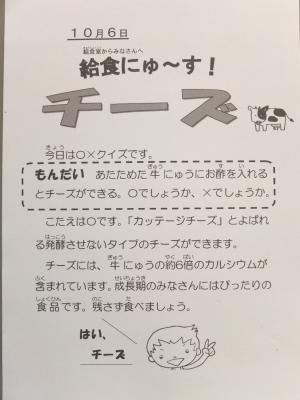 10月6日
給食室からみなさんへ
給食にゅ～す！
チーズ
今日は〇×クイズです。
もんだい あたためた牛にゅうにお酢を入れる
とチーズができる。〇でしょうか、×でしょうか。
こたえは〇です。「カッテージチーズ」とよばれ
る発酵させないタイプのチーズができます。
チーズには、牛にゅうの約6倍のカルシウムが
含まれています。成長期のみなさんにはぴったりの
食品です。残さず食べましょう。
はい、
チーズ